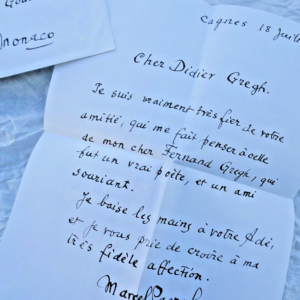 Monaco
Cagnes 18 Juil
Cher Didier Gregh.
Je suis vraiment très fier de votre
amitié, qui me fait penser à celle
de mon cher Fernand Gregh, qui
fut un vrai poète, et un ami
souriant.
Je baise les mains à votre Adé,
et je vous prie de croire à ma
très fidèle affection.
Marcel